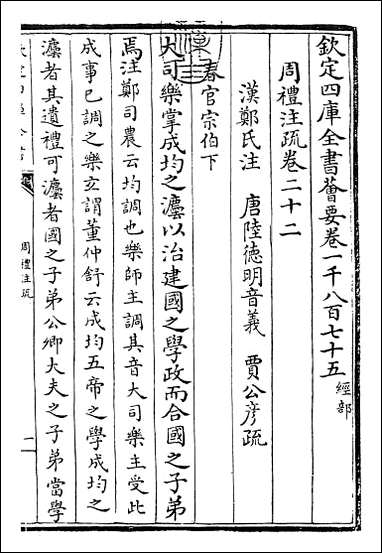 欽定四庫全書薈要卷一千八百七十五 經部
周禮注疏卷二十二
漢鄭氏注 唐陸德明音義 賈公彦疏
春官宗伯下
大司樂掌成均之灋以治建國之學政而合國之子弟
焉注鄭司農云均調也樂師主調其音大司樂主受此
成事已調之樂玄謂董仲舒云成均五帝之學成均之
灋者其遺禮可灋者國之子弟公卿大夫之子弟當學
周禮注疏